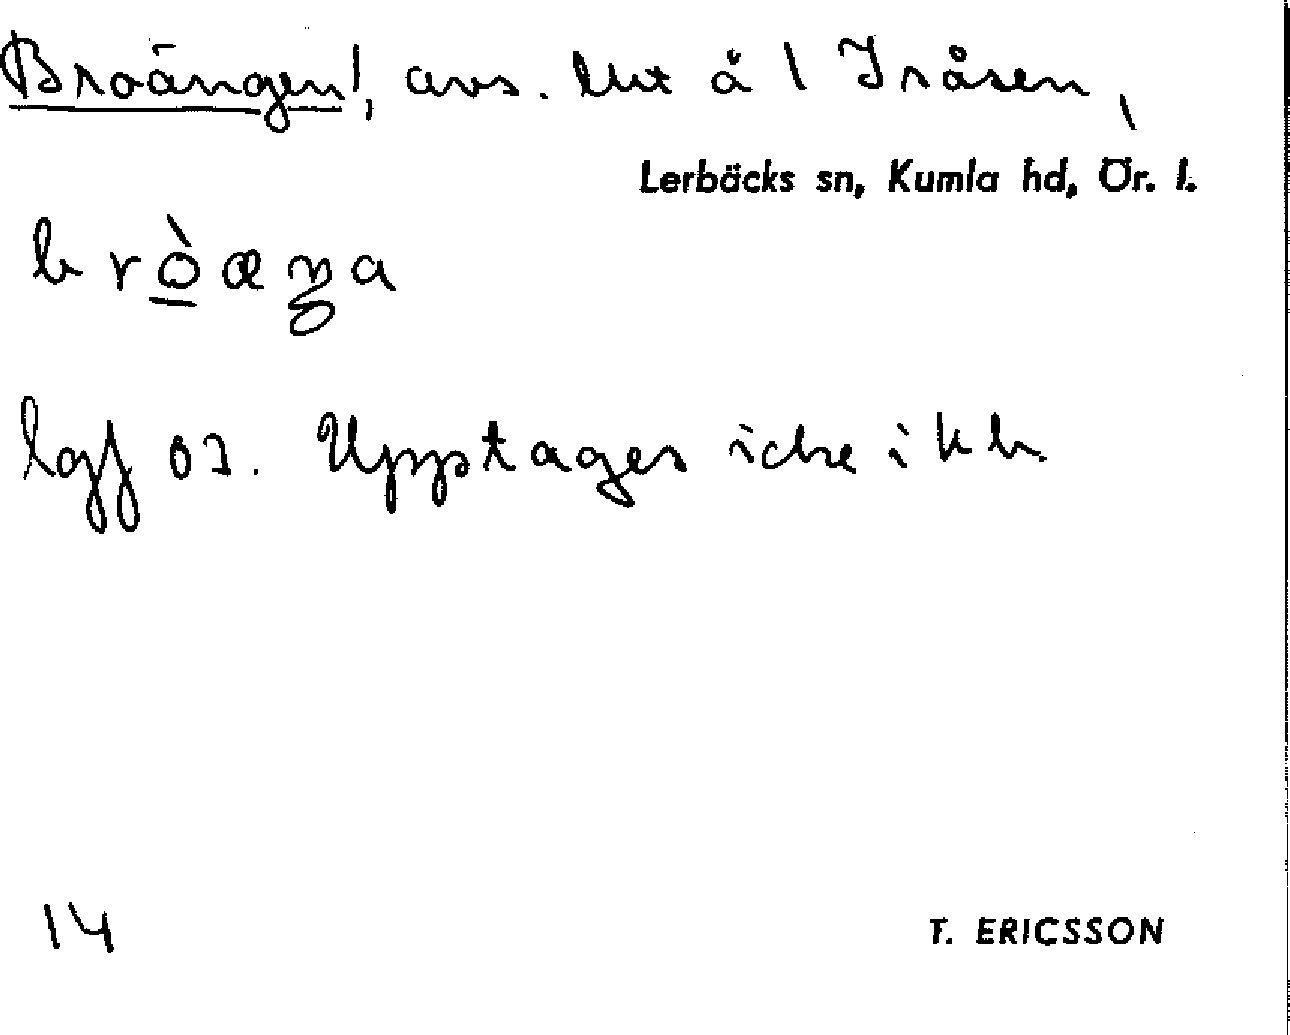 Broängen!, avs. lht å 1 Iråsen,
Lerbäcks sn, Kumla hd, Ör. l.
bròæŋa
lgf 03. Upptages icke i kb
14
T. ERICSSON